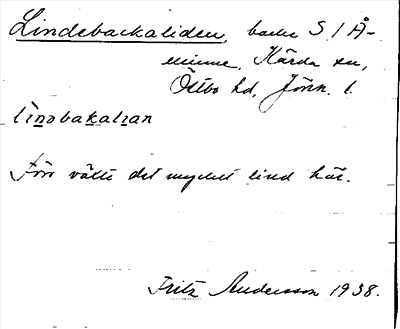 Lindebackaliden backe S 1 Å-
minne, Kärda sn,
Östbo hd, Jönk. l.
lìndbakalıan
Förr växte det mycket lind här.
Fritz Andersson 1938.